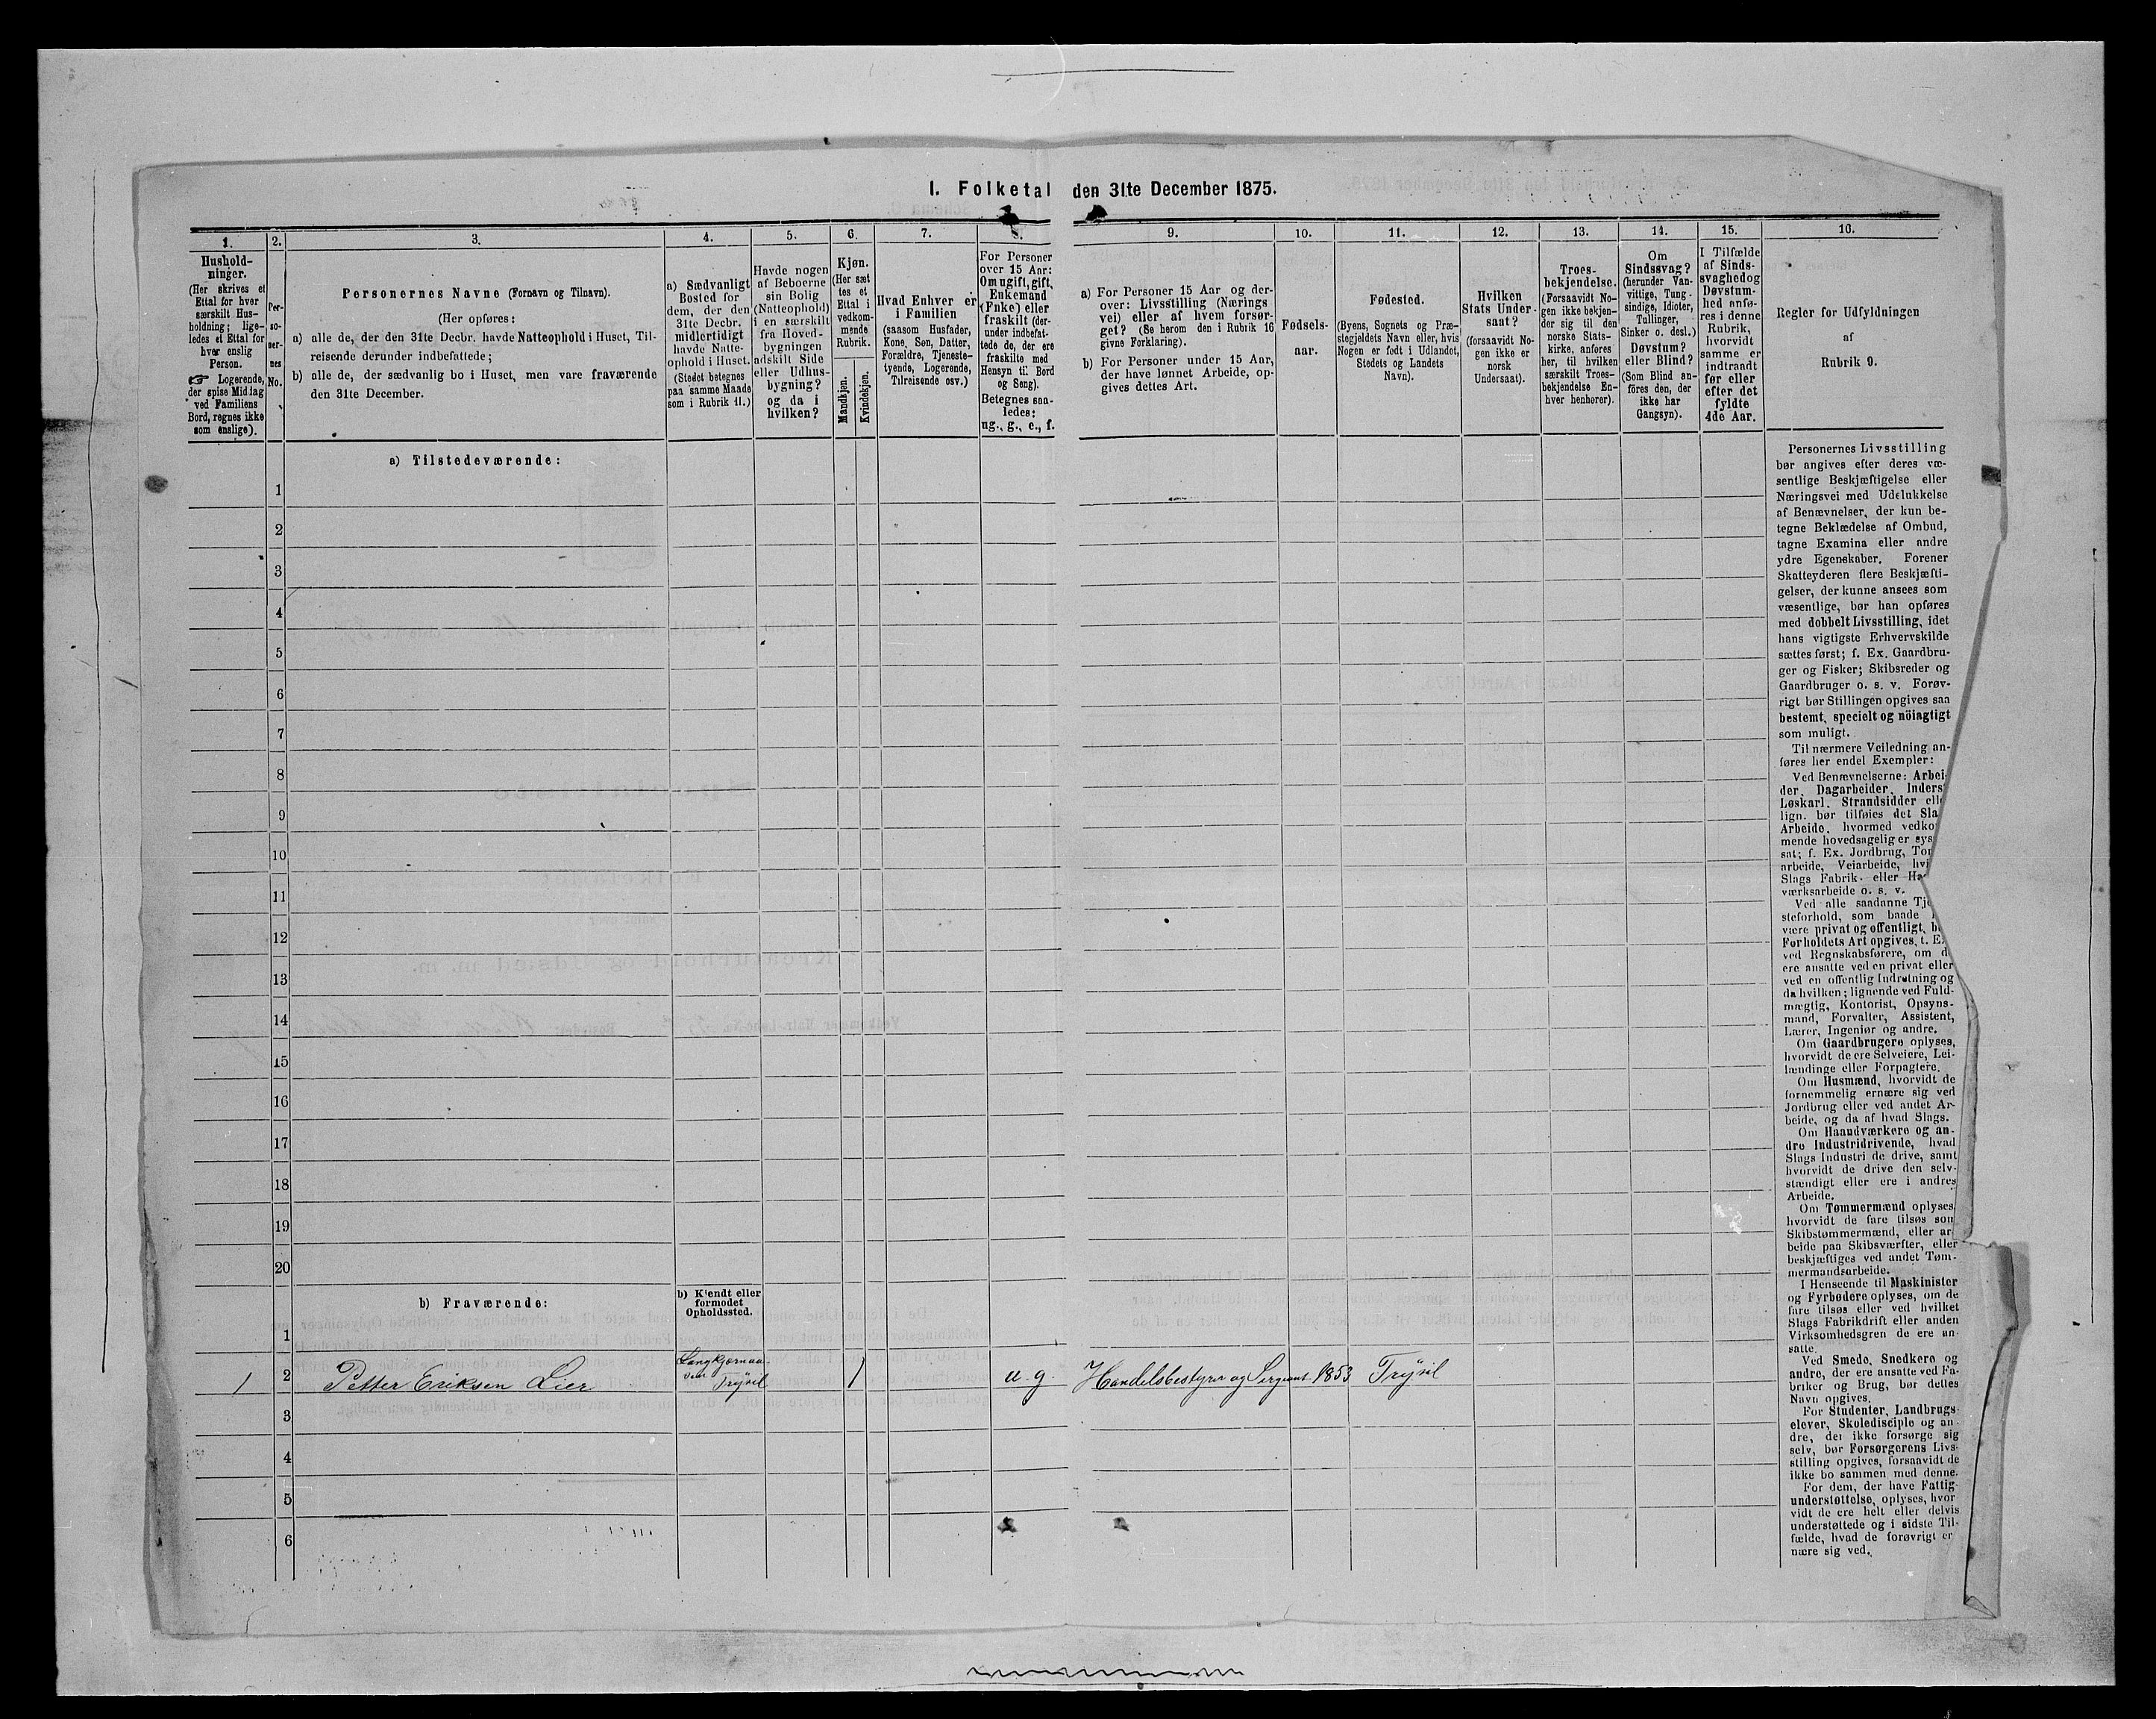 I. Folketal den 31te December 1875.
1.
Hushold-
ninger.
(Her skrives et
Ettal for hver
særskilt Hus-
holdning; lige-
ledes et Ettal for
hver enslig
Person.
☞ Logerende,
der spise Middag
ved Familiens
Bord, regnes ikke
som enslige).
2.
Per-
so-
ner-
nes
No.
3.
Personernes Navne (Fornavn og Tilnavn).
(Her opføres:
a) alle de, der den 31te Decbr. havde Natteophold i Huset, Til-
reisende derunder indbefattede;
b) alle de, der sædvanlig bo i Huset, men vare fraværende
den 31te December.
4.
a) Sædvanligt
Bosted for
dem, der den
31te Decbr.
midlertidigt
havde Natte-
ophold i Huset.
(Stedet betegnes
paa samme Maade
som i Rubrik 11.)
5.
Havde nogen
af Beboerne
sin Bolig
(Natteophold)
i en særskilt
fra Hoved-
bygningen
adskilt Side
eller Udhus-
bygning?
og da i
hvilken?
6.
Kjøn.
(Her sæt
tes et
Ettal i
vedkom-
mende
Rubrik.
Mandkjøn.
Kvindekjøn.
7.
Hvad Enhver er
i Familien
(saasom Husfader,
Kone, Søn, Datter,
Forældre, Tjeneste-
tyende, Logerende,
Tilreisende osv.)
8.
For Personer
over 15 Aar:
Om ugift, gift,
Enkemand
(Enke) eller
fraskilt (der-
under indbefat-
tede de, der ere
fraskilte med
Hensyn til Bord
og Seng).
Betegnes saa-
ledes:
ug., g., e., f.
9.
a) For Personer 15 Aar og der-
over: Livsstilling (Nærings
vei) eller af hvem forsør-
get? (Se herom den i Rubrik 16
givne Forklaring).
b) For Personer under 15 Aar,
der have lønnet Arbeide, op-
gives dettes Art.
10.
Fødsels-
aar.
11.
Fødested.
(Byens, Sognets og Præ-
stegjeldets Navn eller, hvis
Nogen er født i Udlandet,
Stedets og Landets
Navn).
12.
Hvilken
Stats Under-
saat?
(forsaavidt No-
gen ikke er
norsk
Undersaat).
13.
Troes-
bekjendelse.
(Forsaavidt No-
gen ikke bekjen-
der sig til den
norske Stats-
kirke, anføres
her, til hvilken
særskilt Troes-
bekjendelse En-
hver henhører).
14.
Om
Sindssvag?
(herunder Van-
vittige, Tung-
sindige, Idioter,
Tullinger,
Sinker o. desl.)
Døvstum?
eller Blind?
(Som Blind an-
føres den, der
ikke har
Gangsyn).
15.
I Tilfælde
af Sinds-
svaghed og
Døvstum-
hed anfø-
res i denne
Rubrik,
hvorvidt
samme er
indtraadt
før eller
efter det
fyldte
4de Aar.
16.
Regler for Udfyldningen
af
Rubrik 9.
a) Tilstedeværende:
1
2
3
4
5
6
7
8
9
10
11
12
13
14
15
16
17
18
19
20
b) Fraværende:
b) Kjendt eller
formodet
Opholdssted.
1
1 2 Petter Eriksen Lier Trysil 1 u. g. Handelsbestyrer og Sergeant 1853 Trysil
3
4
5
6
Personernes Livsstilling
bør angives efter deres væ-
sentlige Beskjæftigelse eller
Næringsvei med Udelukkelse
af Benævnelser, der kun be-
tegne Beklædelse af Ombud,
tagne Examina eller andre
ydre Egenskaber. Forener
Skatteyderen flere Beskjæfti-
gelser, der kunne ansees som
væsentlige, bør han opføres
med dobbelt Livsstilling, idet
hans vigtigste Erhvervskilde
sættes først; f. Ex. Gaardbru-
ger og Fisker; Skibsreder og
Gaardbruger o. s. v. Forøv-
rigt bør Stillingen opgives saa
bestemt, specielt og nöiagtigt
som muligt.
Til nærmere Veiledning an-
føres her endel Exempler:
Ved Benævnelserne: Arbei-
der, Dagarbeider, Inders
Løskarl, Strandsidder elle
lign. bør tilføies det Sla
Arbeide, hvormed vedko
mende hovedsagelig er sys
sat; f. Ex. Jordbrug, Tor
arbeide, Veiarbeide, hvi
Slags Fabrik- eller Ha
værksarbeide o. s. v.
Ved alle saadanne Tje
steforhold, som baade
være privat og offentligt, b
Forholdets Art opgives, t. E
ved Regnskabsførere, om d
ere ansatte ved en privat eller
ved en offentlig Indretning og
da hvilken; lignende ved Fuld-
mægtig, Kontorist, Opsyns-
mand, Forvalter, Assistent,
Lærer, Ingeniør og andre.
Om Gaardbrugere oplyses,
hvorvidt de ere Selveiere, Lei-
lændinge eller Forpagtere.
Om Husmænd, hvorvidt de
fornemmelig ernære sig ved
Jordbrug eller ved andet Ar-
beide, og da af hvad Slags.
Om Haandværkere og an-
dre Industridrivende, hvad
Slags Industri de drive, samt
hvorvidt de drive den selv-
stændigt eller ere i andres
Arbeide.
Om Tømmermænd oplyses,
hvorvidt de fare tilsøs som
Skibstømmermænd, eller ar-
beide paa Skibsværfter, eller
beskjæftiges ved andet Tøm-
mermandsarbeide.
I Henseende til Maskinister
og Fyrbødere oplyses, om de
fare tilsøs eller ved hvilket
Slags Fabrikdrift eller anden
Virksomhedsgren de ere an-
satte.
Ved Smede, Snedkere og
andre, der ere ansatte ved Fa-
briker og Brug, bør dettes
Navn opgives.
For Studenter, Landbrugs-
elever, Skoledisciple og an-
dre, der ikke forsørge sig
selv, bør Forsørgerens Livs-
stilling opgives, forsaavidt de
ikke bo sammen med denne.
For dem, der have Fattig-
understøttelse, oplyses, hvor
vidt de ere helt eller delvis
understøttede og i sidste Til-
fælde, hvad de forøvrigt er
nære sig ved.